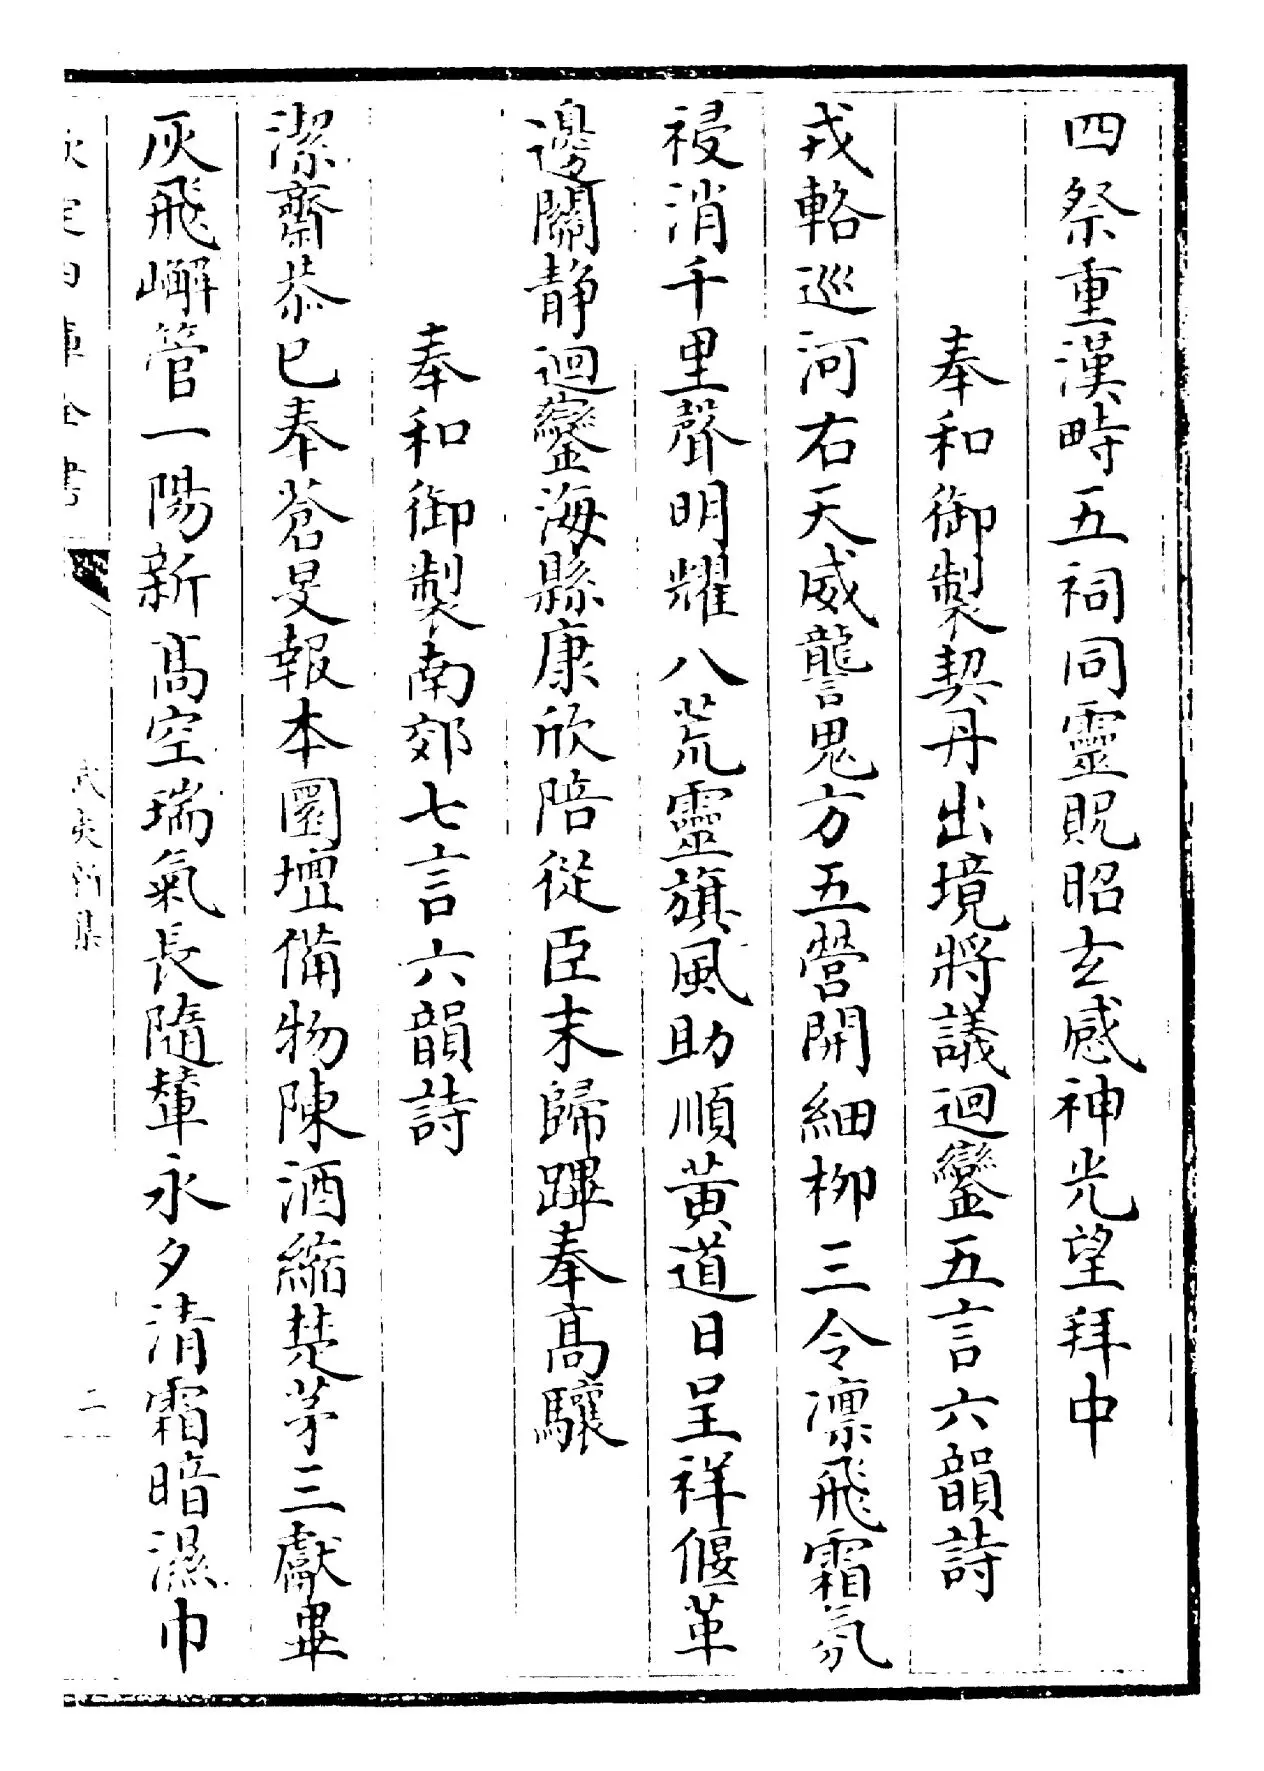 四祭重漢畤五祠同靈貺昭玄感神光望拜中
奉和御製契丹出境將議迴鑾五言六韻詩
戎輅巡河右天威讋鬼方五營開細柳三令凛飛霜氛
祲消千里聲明耀八荒靈旗風助順黃道日呈祥偃革
邊關静迴鑾海縣康欣陪從臣末歸蹕奉高驤
奉和御製南郊七言六韻詩
潔齋恭已奉蒼旻報本圜壇備物陳酒縮楚茅三獻畢
灰飛嶰管一陽新髙空瑞氣長隨輦永夕清霜暗濕巾
欽定四庫全書
武夷新集
二